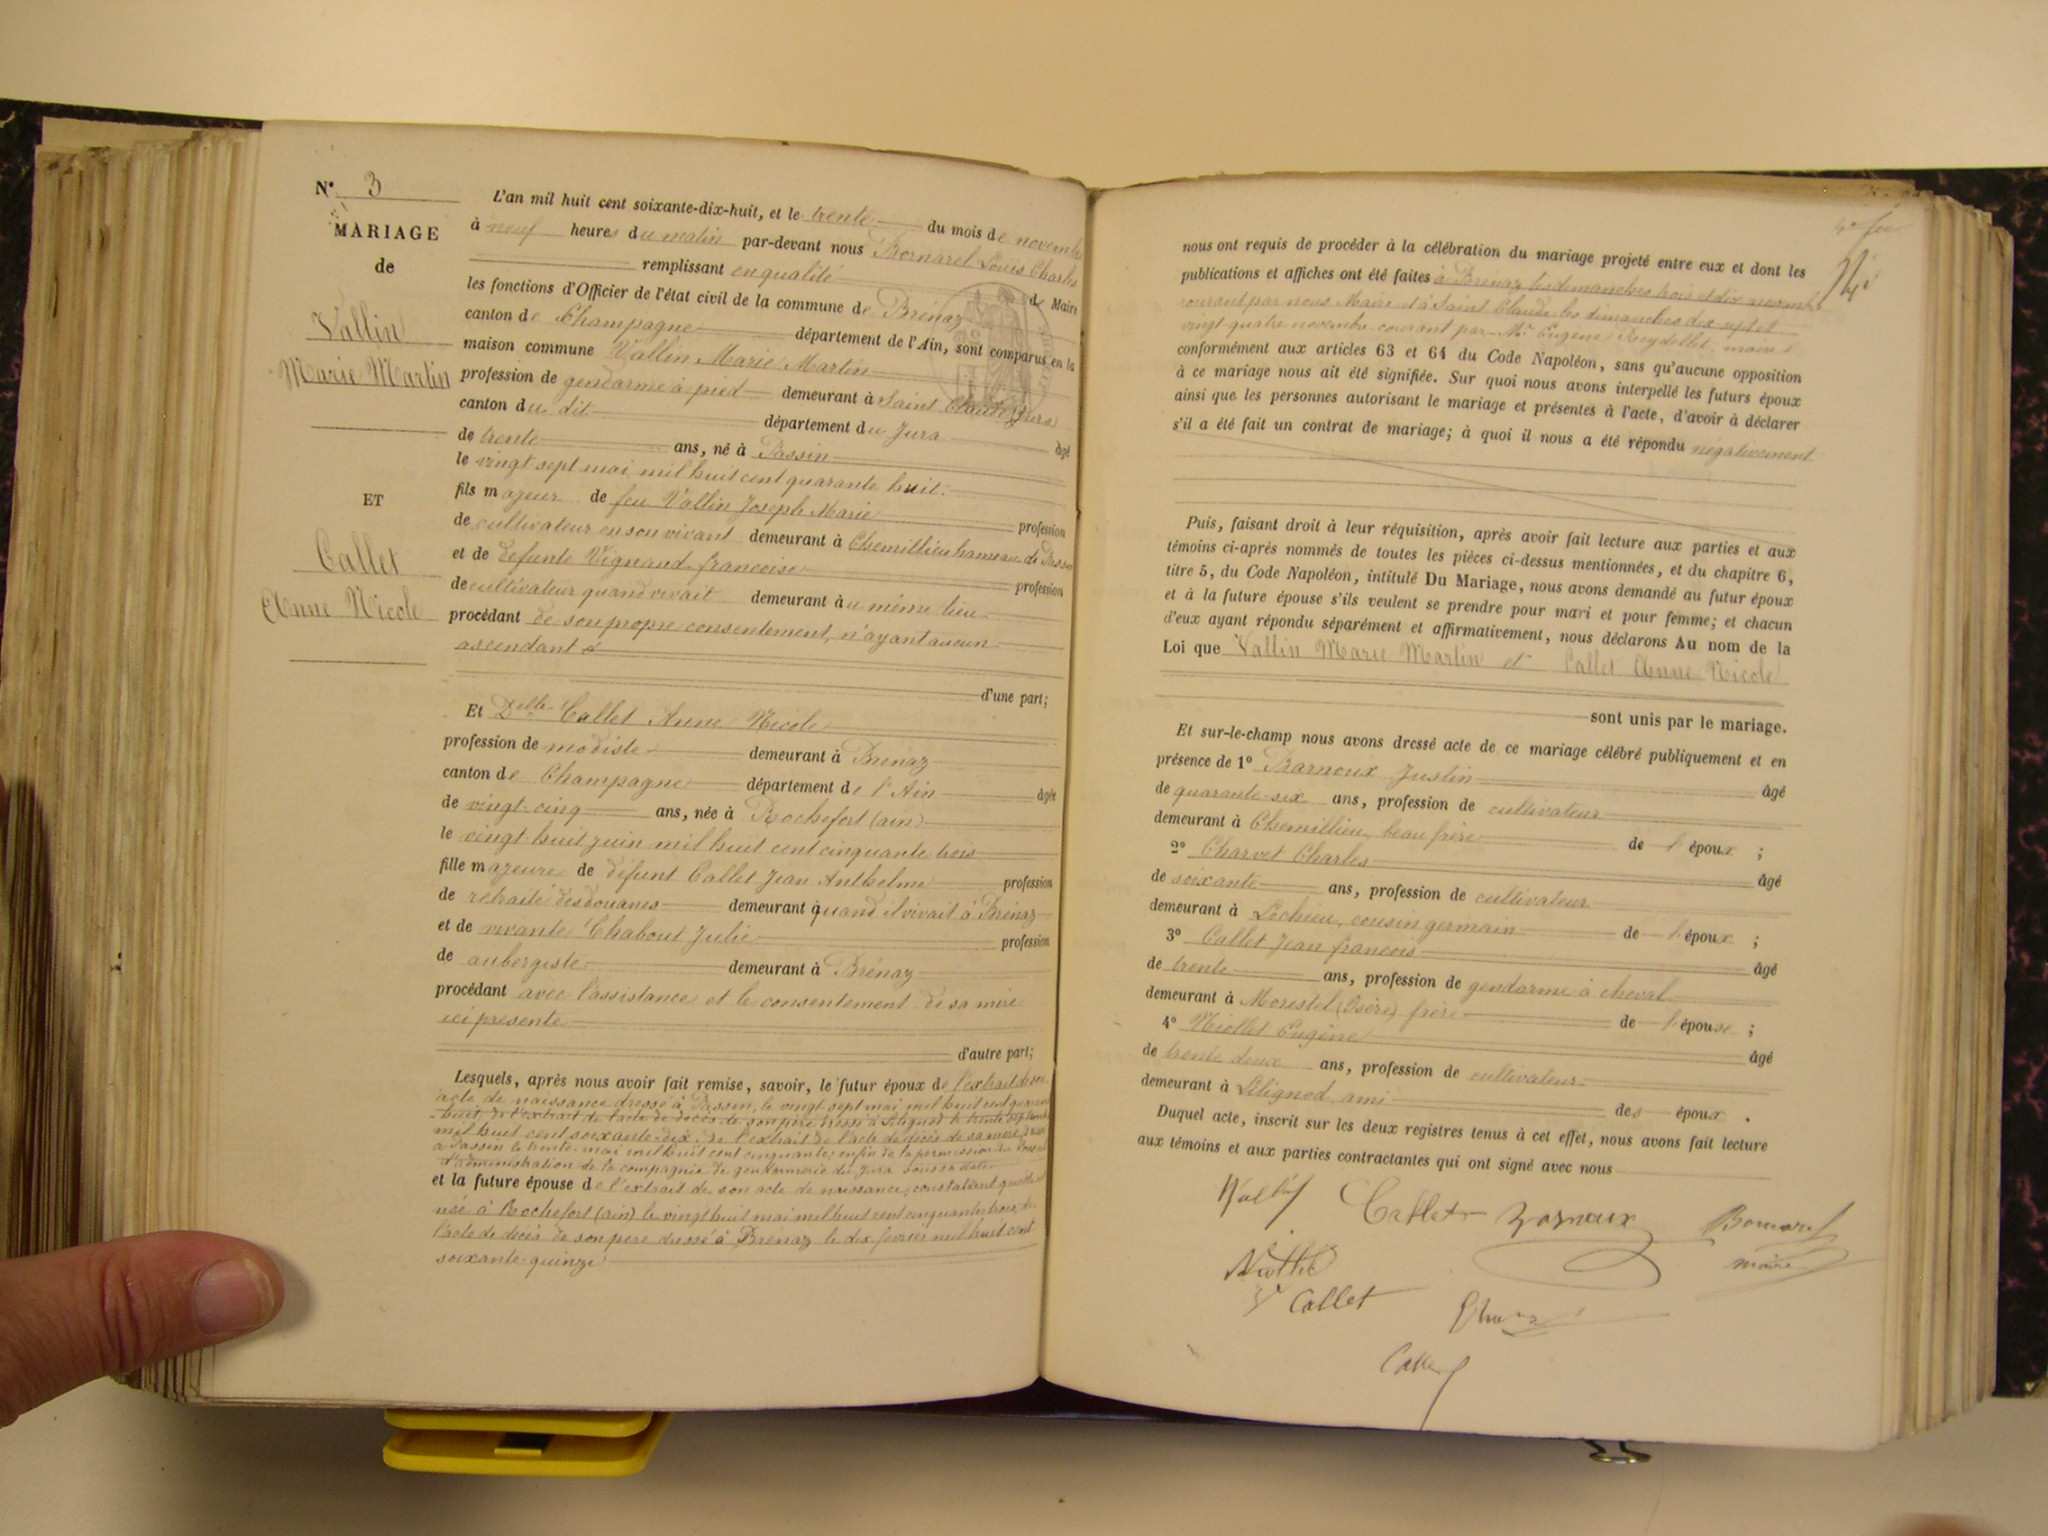 N° 3
MARIAGE
de
Vallin
Marie Martin
ET
Callet
Anne Nicole
L'an mil huit cent soixante-dix-huit, et le trente du mois de novembre
à neuf heures du matin par-devant nous Bornarel Louis Charles
remplissant en qualité de Maire
les fonctions d'Officier de l'état civil de la commune de Brénaz
canton de Champagne département de l'Ain, sont comparus en la
maison commune Vallin Marie Martin
profession de gendarme à pied demeurant à Saint Claude Jura
canton du dit département du Jura âgé
de trente ans, né à Passin
le vingt sept mai mil huit cent quarante huit.
fils majeur de feu Vallin Joseph Marie profession
de cultivateur en son vivant demeurant à Chemillieu hameau de Passin
et de defunte Vignand françoise profession
de cultivateur quand vivait demeurant au même lieu
procédant de son propre consentement, n'ayant aucun
ascendant
d'une part;
Et Delle Callet Anne Nicole
profession de modiste demeurant à Brénaz
canton de Champagne département de l'Ain âgée
de vingt-cinq ans, née à Rochefort (ain)
le vingt huit juin mil huit cent cinquante trois
fille majeure de défunt Callet Jean Anthelme profession
de retraité des douanes demeurant quand il vivait à Brénaz
et de vivante Chabout Julie profession
de aubergiste demeurant à Brénaz
procédant avec l'assistance et le consentement de sa mère
ici présente
d'autre part;
Lesquels, après nous avoir fait remise, savoir, le futur époux de l'extrait de son
acte de naissance dressé à Passin, le vingt sept mai mil huit cent quarante
huit, de l'extrait de l'acte de décès de son père dressé à Lilignod le trente septembre
mil huit cent soixante-dix, de l'extrait de l'acte de décès de sa mère dressé
à Passin le trente mai mil huit cent cinquante; enfin de la permission du Conseil
d'administration de la compagnie de gendarmerie du Jura
et la future épouse de l'extrait de son acte de naissance, constatant qu'elle est
née à Rochefort (ain) le vingt huit mai mil huit cent cinquante trois, de
l'acte de décès de son père dressé à Brénaz le dix février mil huit cent
soixante-quinze
nous ont requis de procéder à la célébration du mariage projeté entre eux et dont les
publications et affiches ont été faites à Brénaz les demanches trois et dix novembre
courant par nous Maire et à Saint Claude les dimanches dix sept et
vingt-quatre novembre courant par Mr Eugène maire
conformément aux articles 63 et 64 du Code Napoléon, sans qu'aucune opposition
à ce mariage nous ait été signifiée. Sur quoi nous avons interpellé les futurs époux
ainsi que les personnes autorisant le mariage et présentes à l'acte, d'avoir à déclarer
s'il a été fait un contrat de mariage; à quoi il nous a été répondu négativement
Puis, faisant droit à leur réquisition, après avoir fait lecture aux parties et aux
témoins ci-après nommés de toutes les pièces ci-dessus mentionnées, et du chapitre 6,
titre 5, du Code Napoléon, intitulé Du Mariage, nous avons demandé au futur époux
et à la future épouse s'ils veulent se prendre pour mari et pour femme; et chacun
d'eux ayant répondu séparément et affirmativement, nous déclarons Au nom de la
Loi que Vallin Marie Martin et Callet Anne Nicole
sont unis par le mariage.
Et sur-le-champ nous avons dressé acte de ce mariage célébré publiquement et en
présence de 1° Barnoux Justin âgé
de quarante-six ans, profession de cultivateur
demeurant à Chemillieu, beau frère de l'époux ;
2° Charvet Charles âgé
de soixante ans, profession de cultivateur
demeurant à Lochieu, cousin germain de l'époux ;
3° Callet Jean françois âgé
de trente ans, profession de gendarme à cheval
demeurant à Morestel (Isère) frère de l'épouse ;
4° Niollet Eugène âgé
de trente deux ans, profession de cultivateur
demeurant à Lilignod, ami des époux .
Duquel acte, inscrit sur les deux registres tenus à cet effet, nous avons fait lecture
aux témoins et aux parties contractantes qui ont signé avec nous
Callet Bornarel
maire
Callet